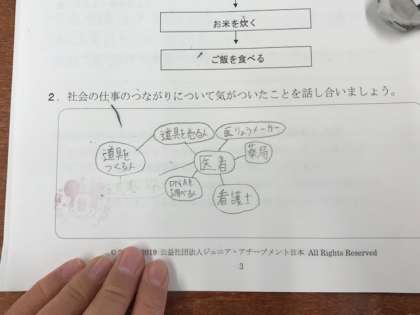 お米を炊く
ご飯を食べる
2．社会の仕事のつながりについて気がついたことを話し合いましょう。
道具を売る人
医りょうメーカー
道具を
つくる人
医者
薬局
DNAを
調べる人
看護士
2019 公益社団法人ジュニア・アチーブメント日本 All Rights Reserved
3